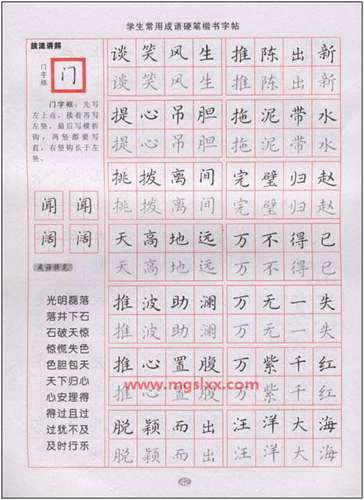 学生常用成语硬笔楷书字帖
技法讲解
门字框
门
门字框：先写
左上点，接着再写
左竖，最后写横折
钩，两竖都要写
直，右竖钩长于左
竖。
闻 闻
阔 阔
成语填充
光明磊落
落井下石
石破天惊
惊慌失色
色胆包天
天下归心
心安理得
得过且过
过犹不及
及时行乐
谈笑风生 推陈出新
谈笑风生 推陈出新
提心吊胆 拖泥带水
提心吊胆 拖泥带水
挑拨离间 完璧归赵
挑拨离间 完璧归赵
天高地远 万不得已
天高地远 万不得已
推波助澜 万无一失
推波助澜 万无一失
推心置腹 万紫千红
推心置腹 万紫千红
www.mgslxx.com
脱颖而出 汪洋大海
脱颖而出 汪洋大海